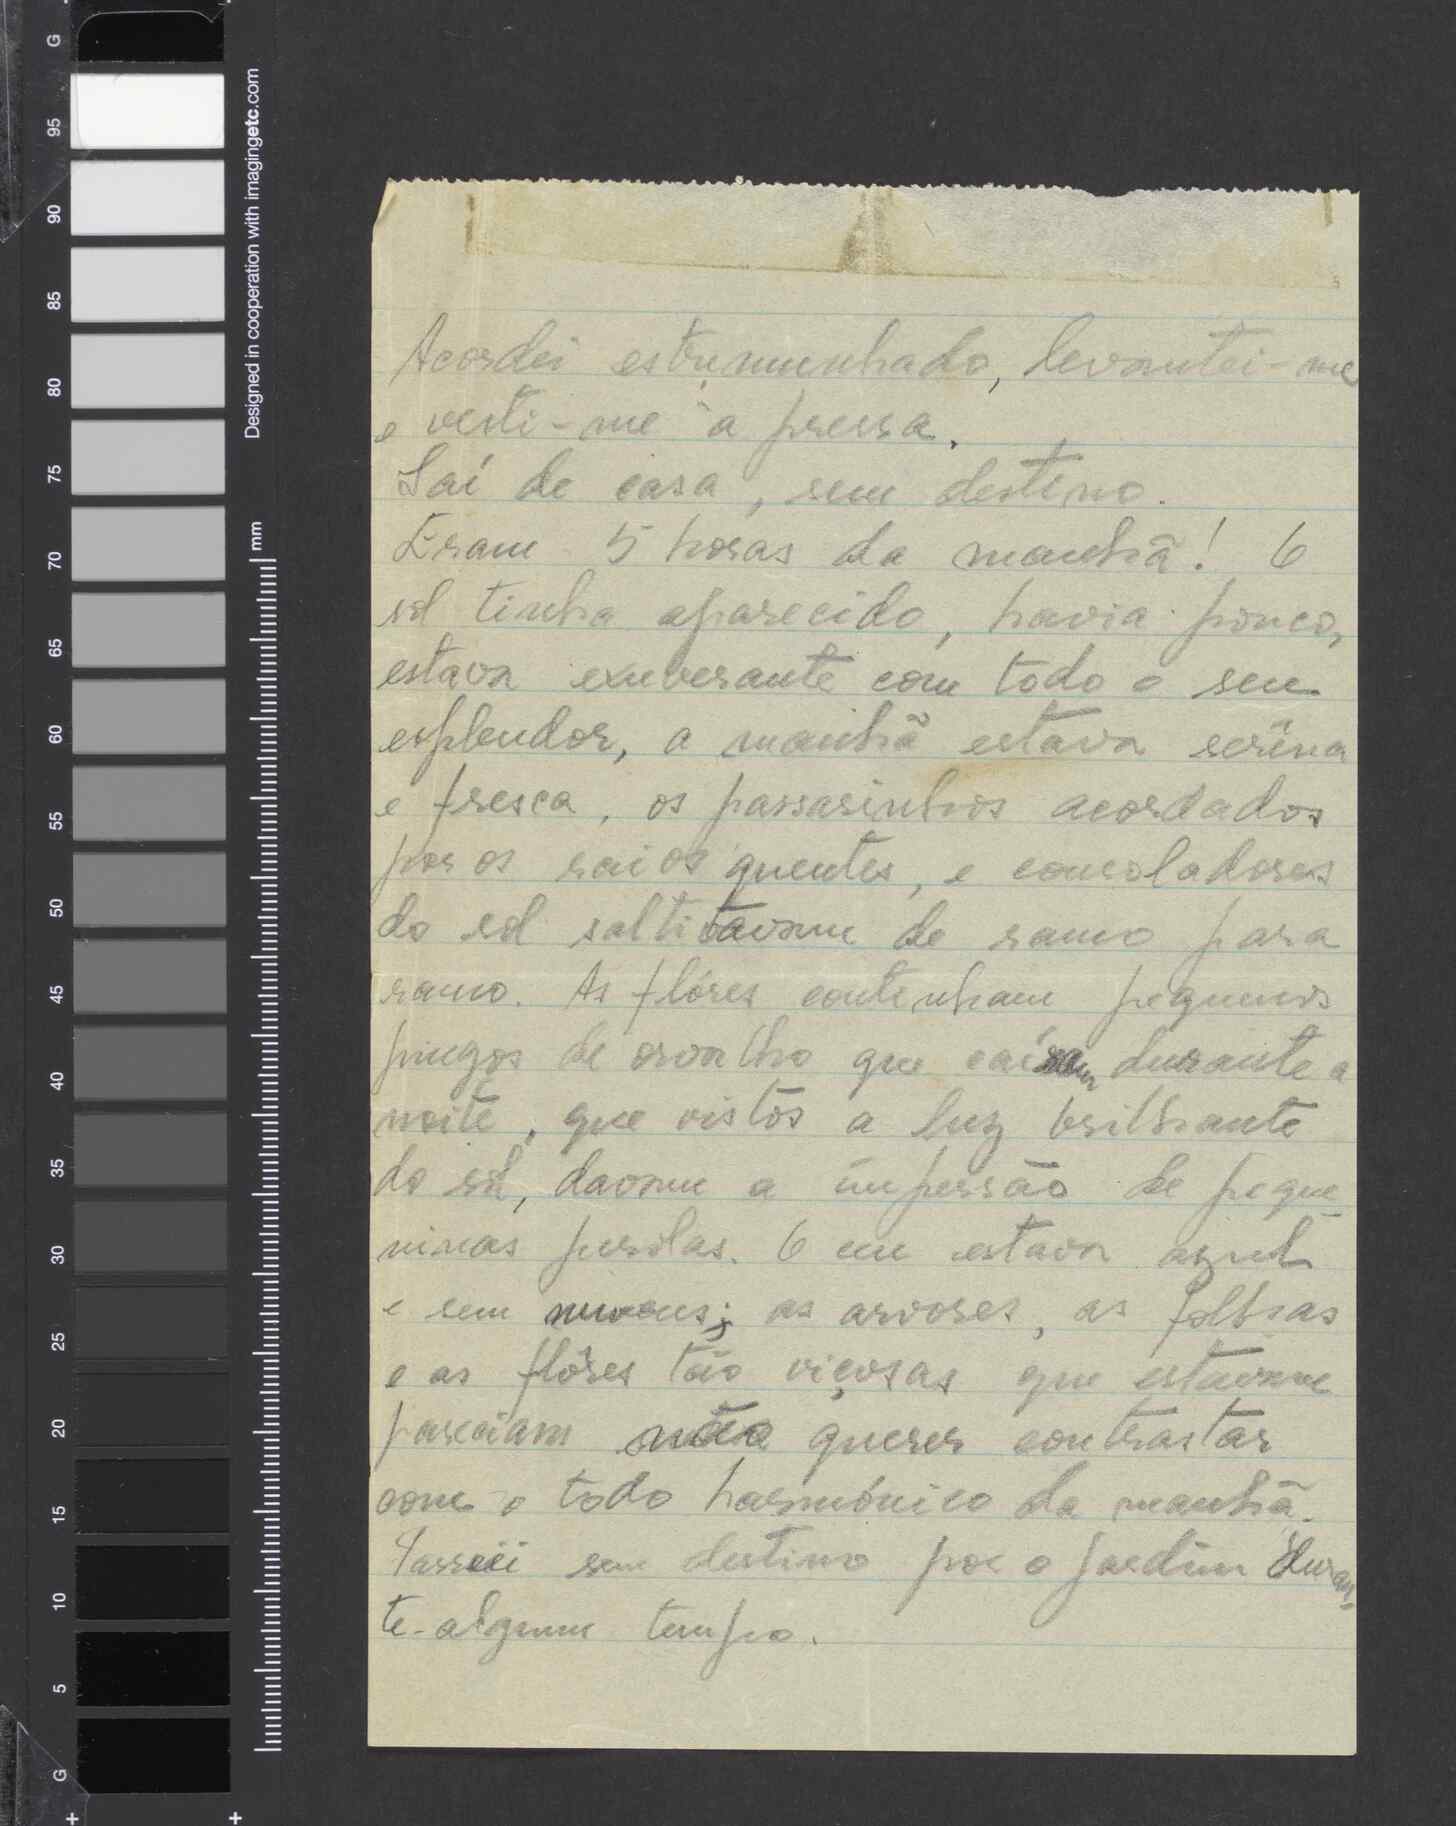 G
95
90
85
80
75
70
65
60
55
50
45
40
35
30
25
20
15
10
5
G
Designed in cooperation with imagingetc.com
mm
Acordei estrumunhado, levantei-me
e vesti-me à pressa.
Saí de casa, sem destino.
Eram 5 horas da manhã! O
sol tinha aparecido, havia pouco,
estava exuverante com todo o seu
esplendor, a manhã estava serêna
e fresca, os passarinhos acordados
por os raios quentes, e consoladores
do sol saltitavam de ramo para
ramo. As flóres continham pequenos
pingos de orvalho que caíram durante a
noite, que vistos a luz brilhante
do sol, davam a impressão de peque_
ninas perólas. O ceu estava azul
e sem nuvens; as arvores, as folhas
e as flôres tão viçosas que estavam
pareciam não querer contrastar
com o todo harmónico da manhã.
Passeei sem destino por o jardim duran_
te algum tempo.